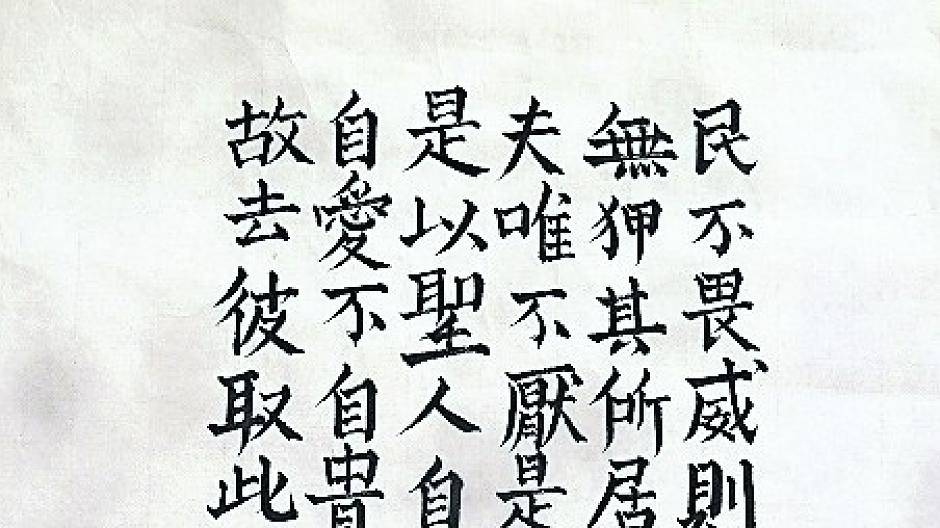 民不畏威則
無狎其所居
夫唯不厭是
是以聖人自
自愛不自貴
故去彼取此